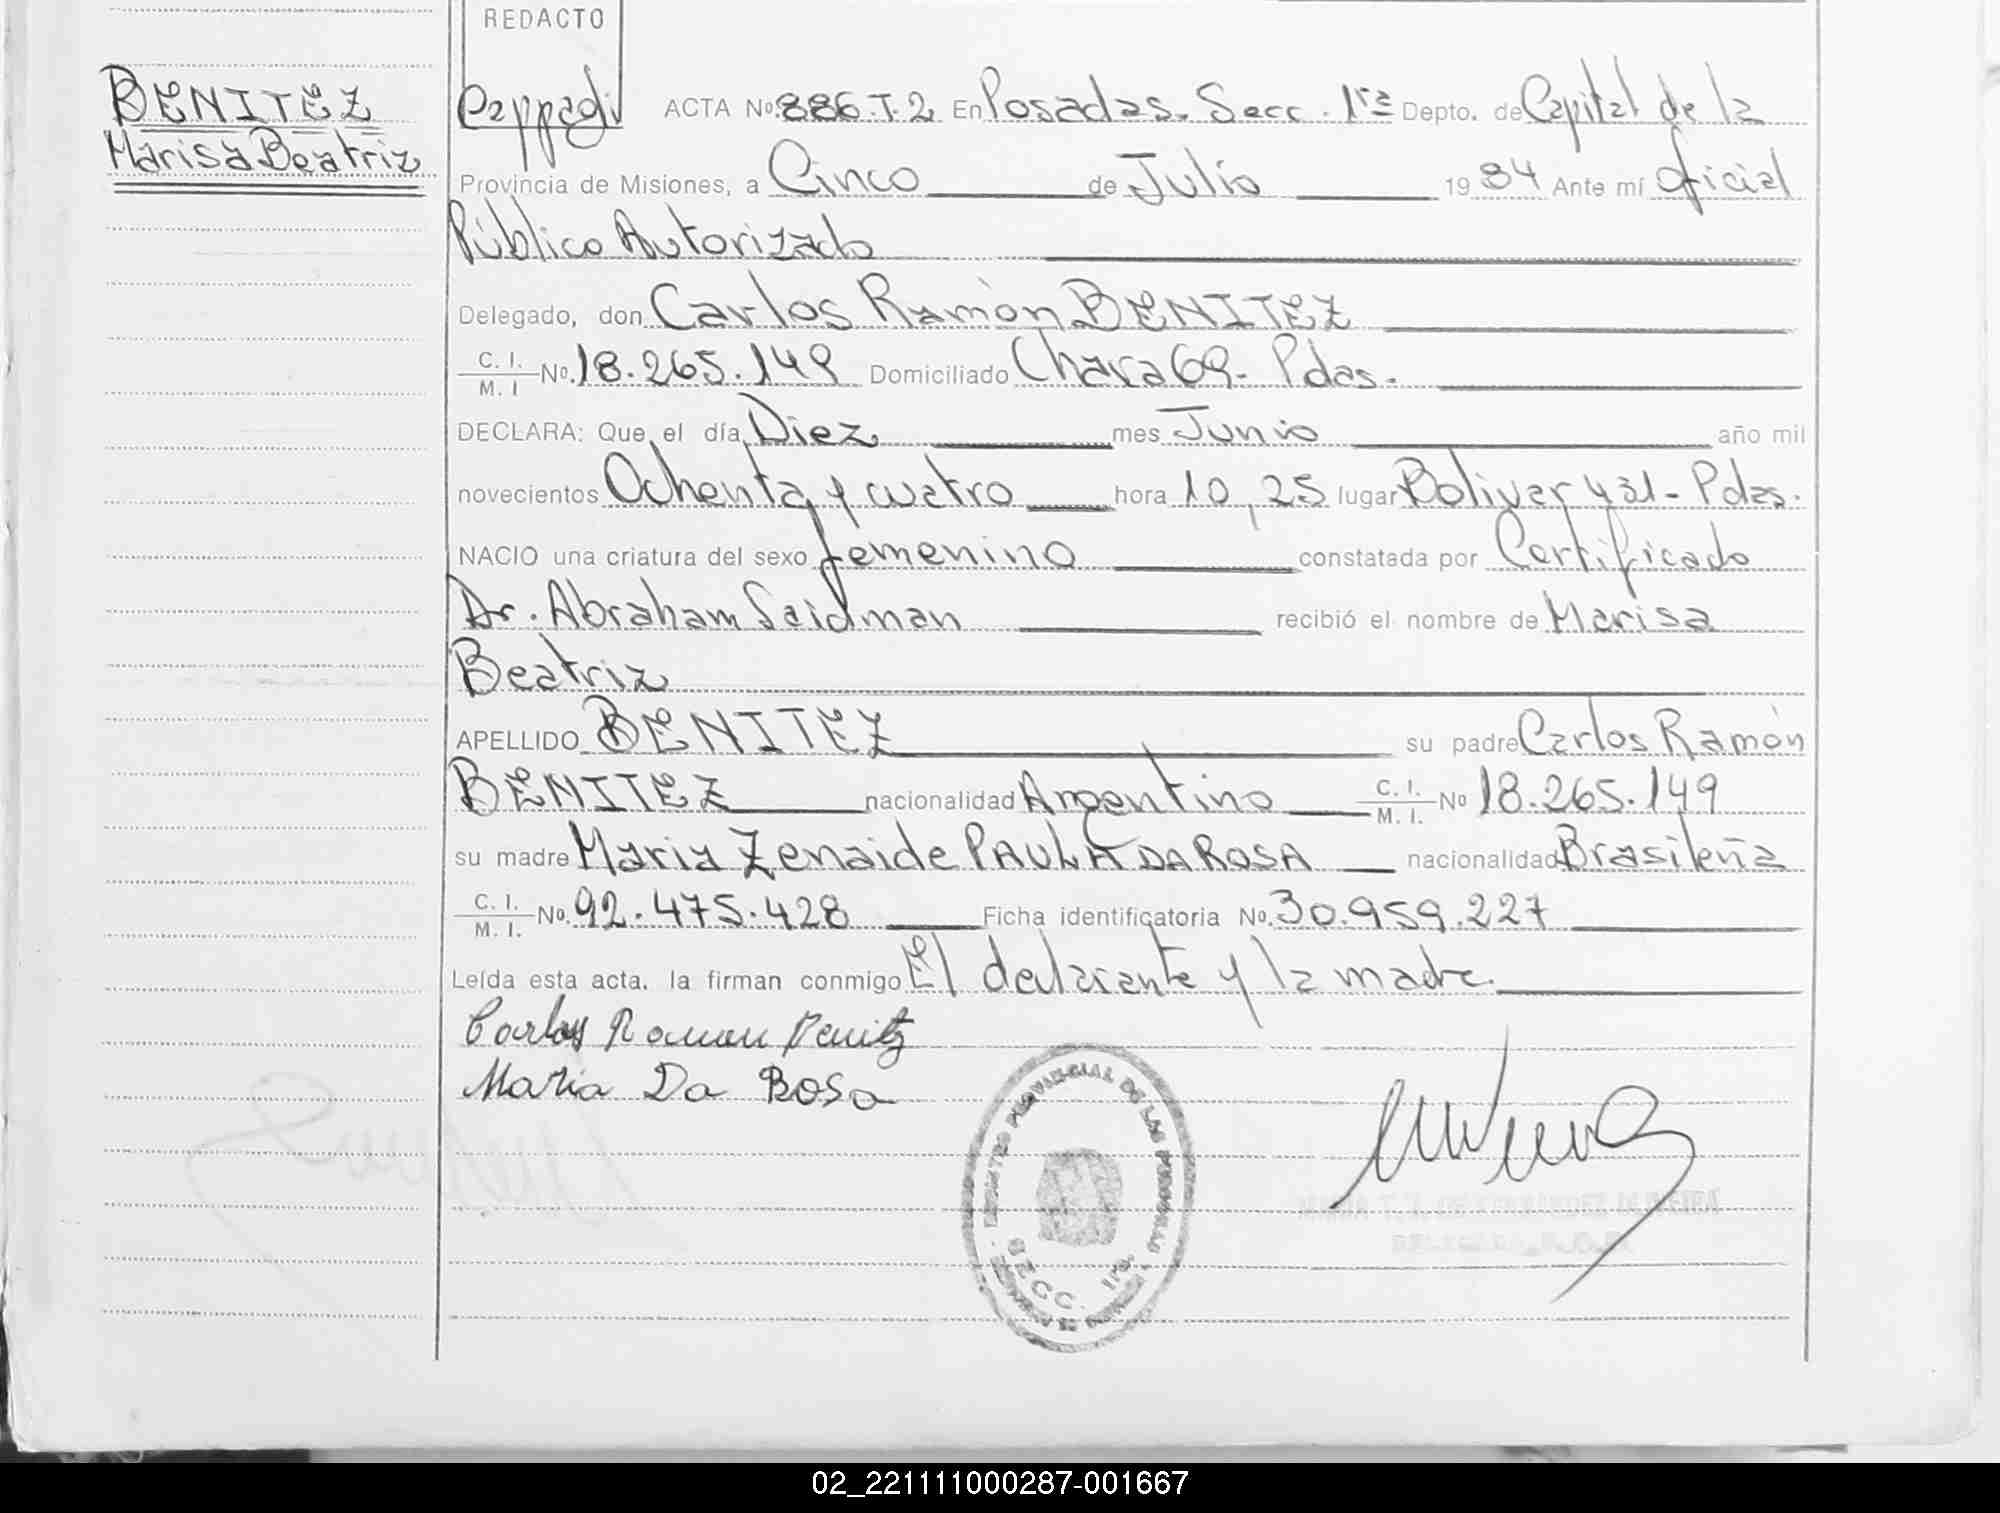 REDACTO
BENITEZ
Marisa Beatriz
ACTA Nº 886.T.2 En Posadas. Secc. 1ra Depto. de Capital de la
Provincia de Misiones, a Cinco de Julio 1984 Ante mí Oficial
Público Autorizado
Delegado, don Carlos Ramón BENITEZ
C. I. / M. I Nº. 18.265.149 Domiciliado Chara 69- Pdas.
DECLARA: Que el día Diez mes Junio año mil
novecientos Ochenta y cuatro hora 10,25 lugar Bolivar 431- Pdas.
NACIO una criatura del sexo femenino constatada por Certificado
Dr. Abraham Seidman recibió el nombre de Marisa
Beatriz
APELLIDO BENITEZ su padre Carlos Ramón
BENITEZ nacionalidad Argentino C. I. / M. I. Nº 18.265.149
su madre Maria Zenaide PAULA DA ROSA nacionalidad Brasileña
C. I. / M. I. Nº. 92.475.428 Ficha identificatoria Nº. 30.959.227
Leída esta acta, la firman conmigo El declarante y la madre.
Carlos Ramon Benitez
Maria Da Rosa
PROVINCIAL DE LAS PERSONAS
SECC. 1ra.
02_221111000287-001667